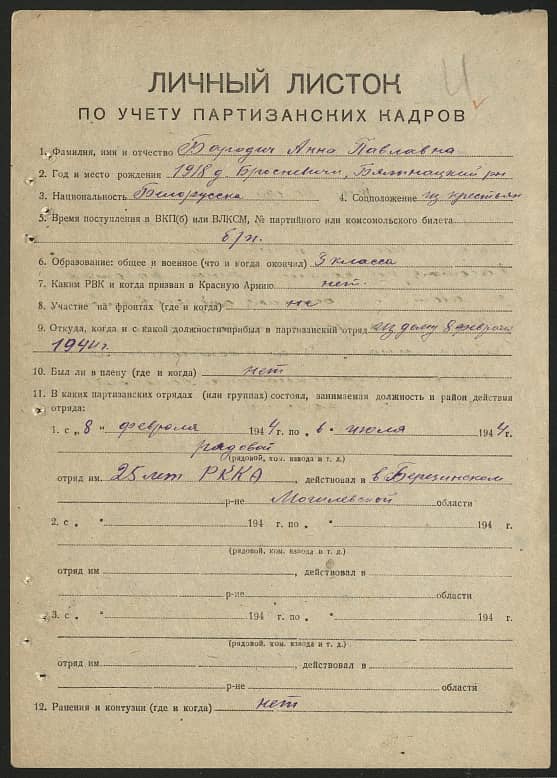 И
ЛИЧНЫЙ ЛИСТОК
ПО УЧЕТУ ПАРТИЗАНСКИХ КАДРОВ
1. Фамилия, имя и отчество Бородич Анна Павловна
2. Год и место рождения 1918 д. Бросневичи, Бялыничский р-н
3. Национальность Белорусска 4. Соцположение из крестьян
5. Время поступления в ВКП(б) или ВЛКСМ, № партийного или комсомольского билета
б/п.
6. Образование: общее и военное (что и когда окончил) 3 класса
7. Каким РВК и когда призван в Красную Армию нет.
8. Участие на фронтах (где и когда) не
9. Откуда, когда и с какой должности прибыл в партизанский отряд из дому 8 февраля
1944 г.
10. Был ли в плену (где и когда) нет
11. В каких партизанских отрядах (или группах) состоял, занимаемая должность и район действия
отряда:
1. с „ 8 " февраля 1944 г. по „ 6 " июля 1944 г.
рядовой
(рядовой, ком. взвода и т. д.)
отряд им. 25 лет РККА, действовал в в Березинском
р-не Могилевской области
2. с „ " 194 г. по „ " 194 г.
(рядовой, ком. взвода и т. д.)
отряд им. , действовал в
р-не области
3. с „ " 194 г. по „ " 194 г.
(рядовой, ком. взвода и т. д.)
отряд им. , действовал в
р-не области
12. Ранения и контузии (где и когда) нет